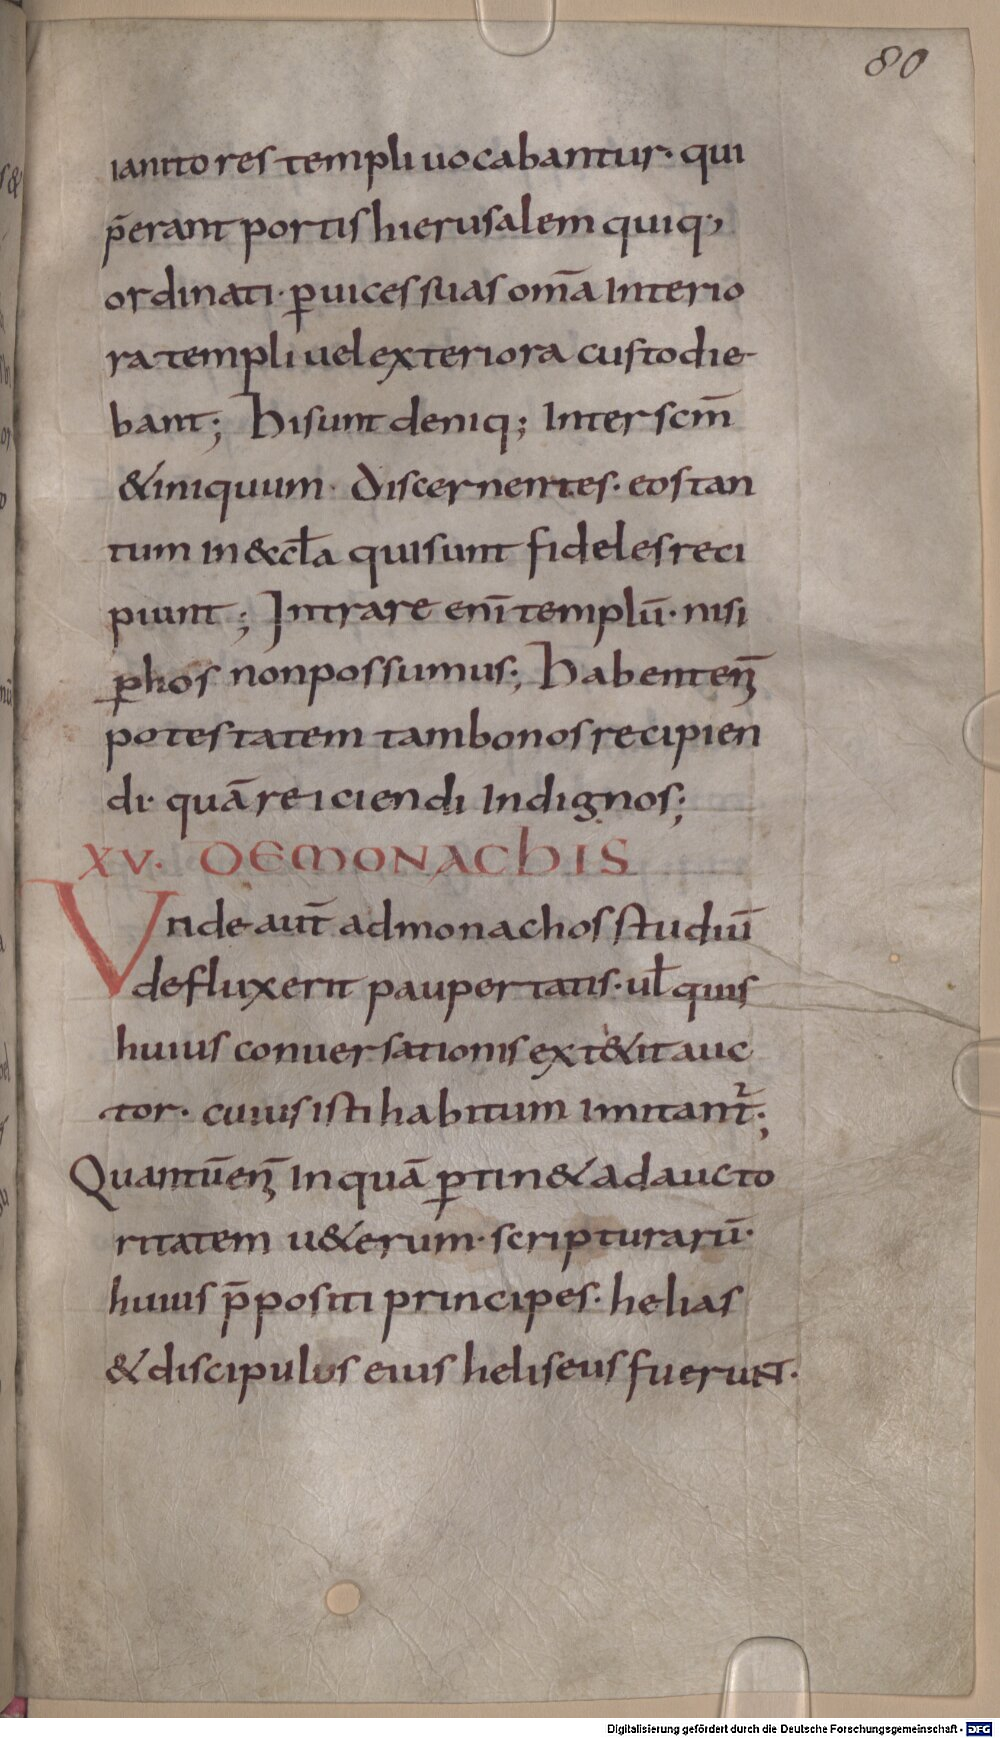 80
ianitores templi uocabantur· qui
p̄erant portis hierusalem quiq;,
ordinati· ꝑuices suas om̄a interio
ra templi uel exteriora custodie-
bant; Hi sunt deniq; inter scm̄
&iniquum· discernentes· eos tan
tum in &ccl̄a qui sunt fideles reci
piunt; Intrare eni̅ templu̅· nisi
ꝑ hos non possumus; Habent en̄
potestatem tam bonos recipien
di· qua̅ reiciendi indignos;
XV. DE MONACHIS
Unde aut̄ ad monachos studiu̅
defluxerit paupertatis· ul̄ quis
huius conuersationis ext&it auc
tor· cuius isti habitum imitant᷑;
Quantu̅ en̄ inqua̅ ꝑtin& ad aucto
ritatem u&erum· scripturaru̅·
huius p̄positi principes· helias
& discipulus eius heliseus fuerunt·
Digitalisierung gefördert durch die Deutsche Forschungsgemeinschaft - DFG